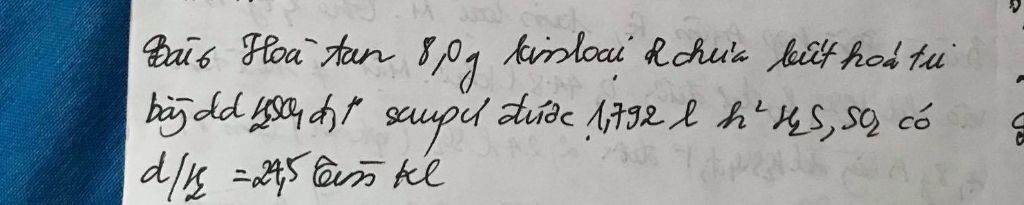 Bài 6 Hoà tan 8,0g kim loại R chưa biết hoá trị
bằng dd H₂SO₄ đ, t° sau pư được 1,792 l h² H₂S, SO₂ có
d/H₂ = 24,5 tìm Kl